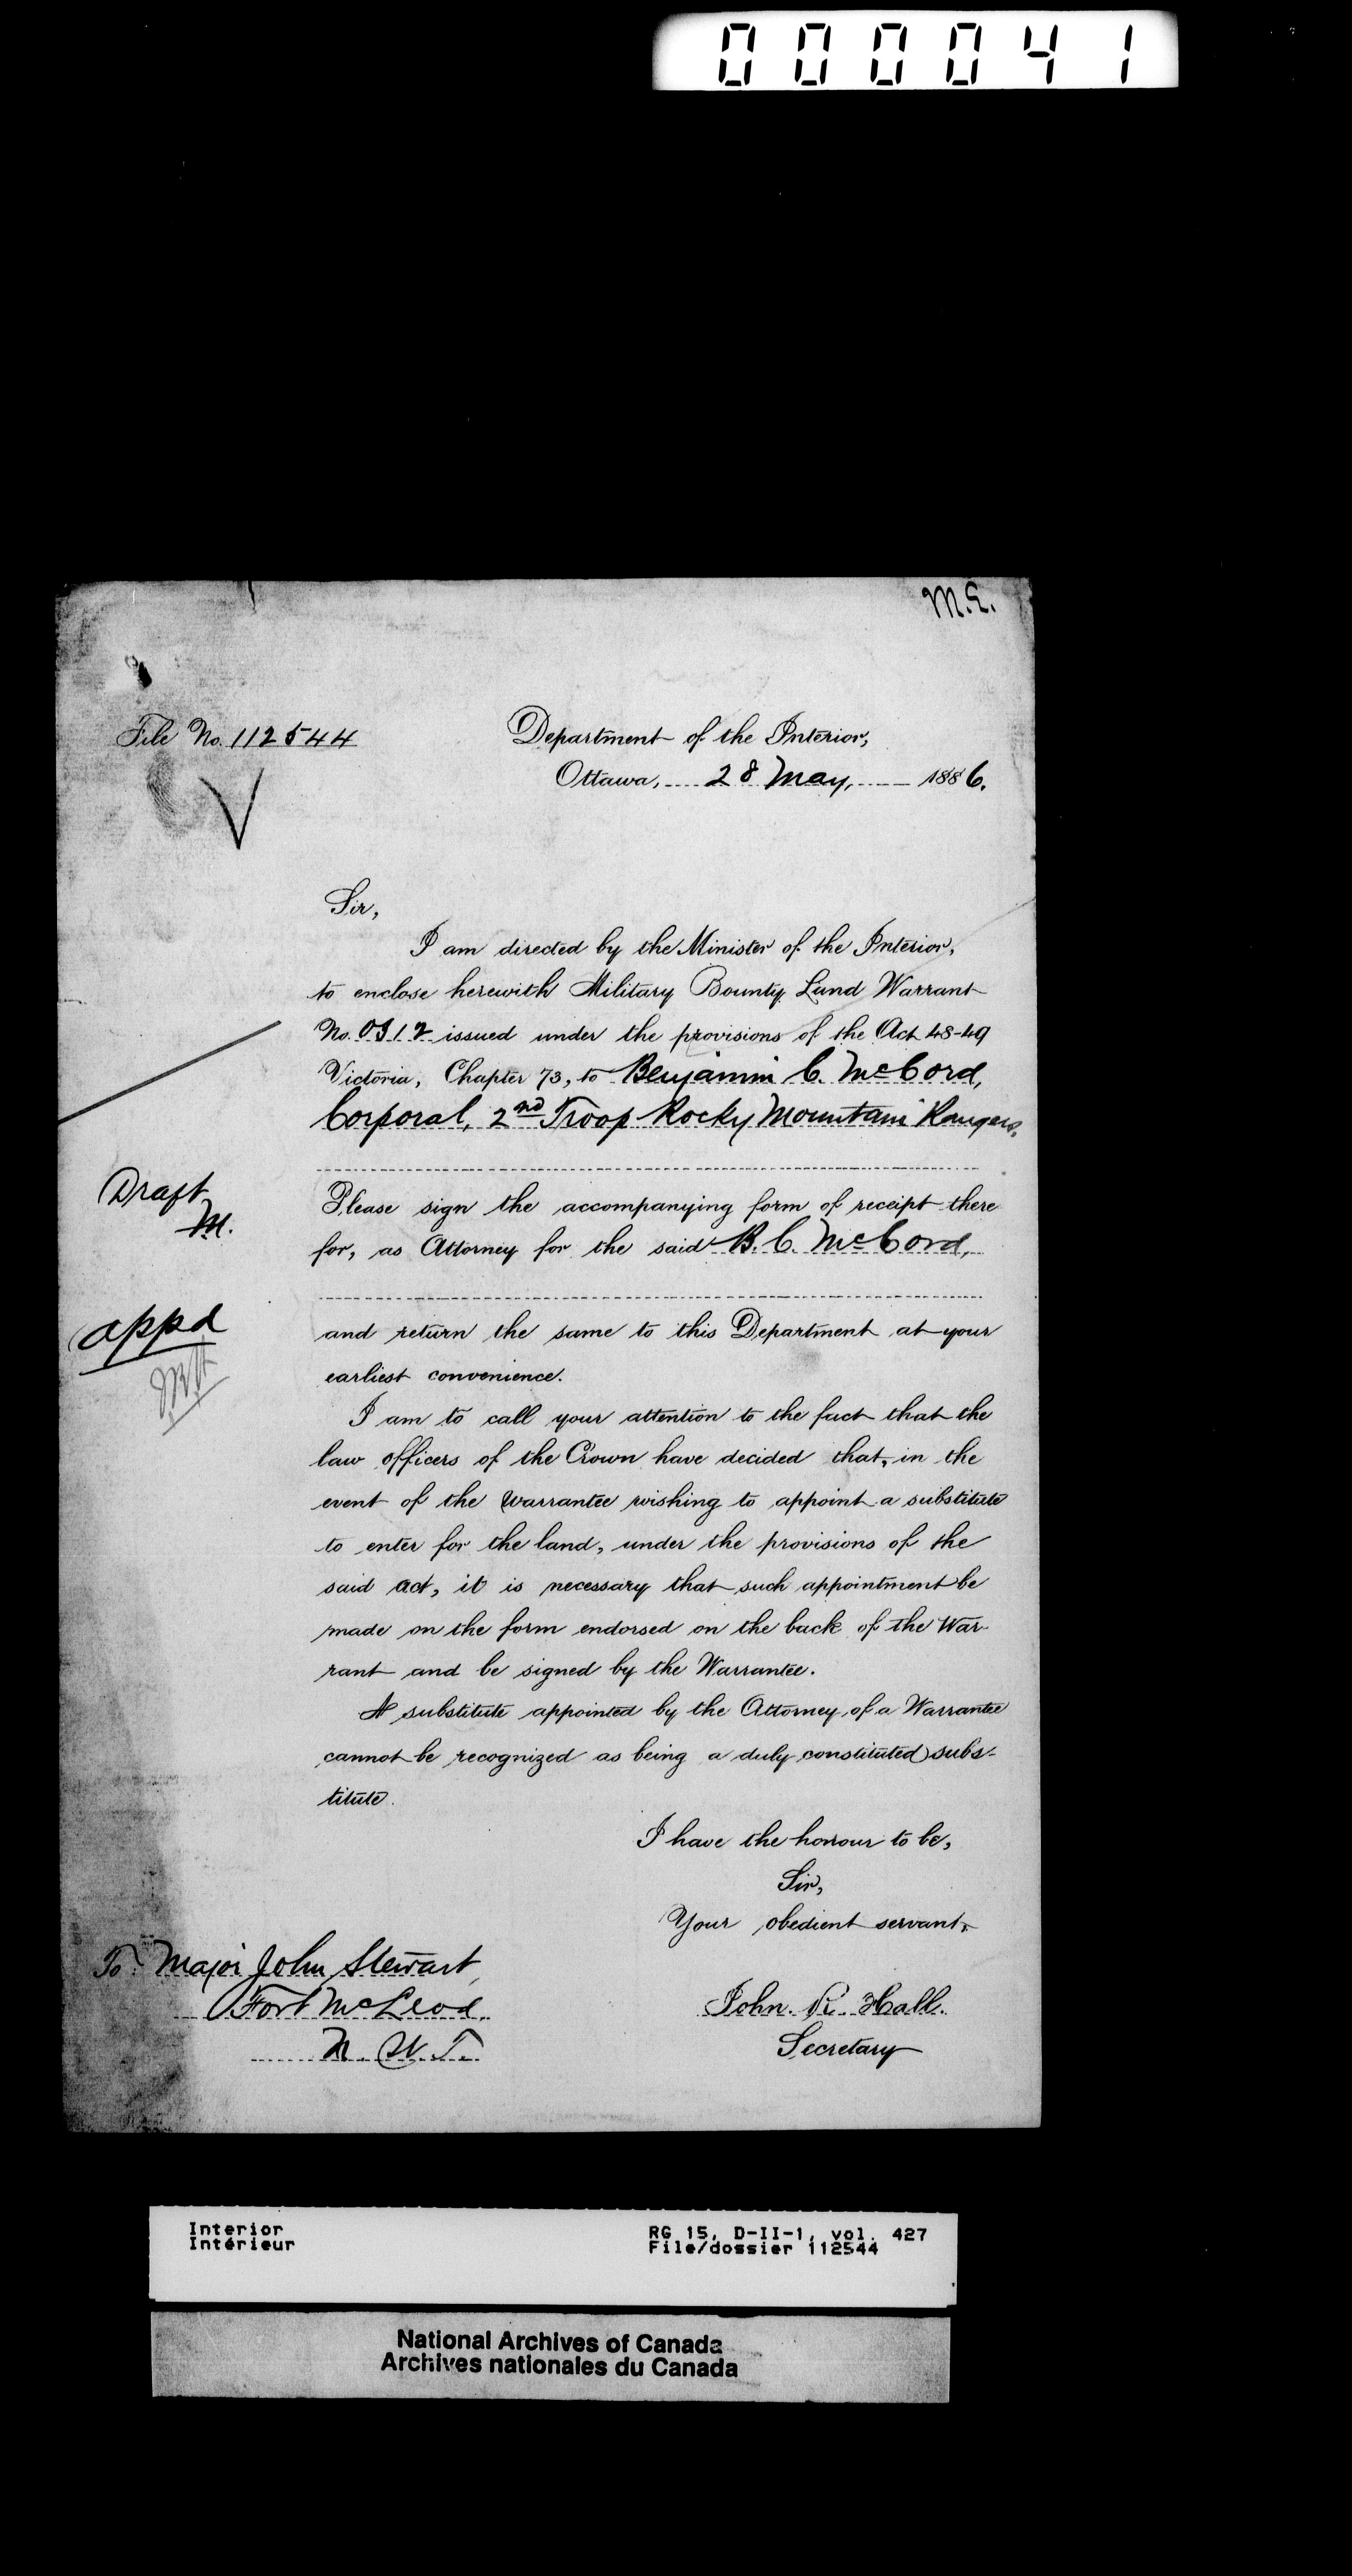 000041
M.E.
File No. 112544
Department of the Interior,
Ottawa, 28 May, 1886.
Sir,
I am directed by the Minister of the Interior,
to enclose herewith Military Bounty Land Warrant
No. issued under the provisions of the Act 48-49
Victoria, Chapter 73, to Benjamin C. McCord,
Corporal, 2nd Troop Rocky Mountain Rangers.
Draft
M.
Please sign the accompanying form of receipt there
for, as Attorney for the said B. C. McCord,
appd
and return the same to this Department at your
earliest convenience.
I am to call your attention to the fact that the
law officers of the Crown have decided that, in the
event of the Warrantee wishing to appoint a substitute
to enter for the land, under the provisions of the
said Act, it is necessary that such appointment be
made on the form endorsed on the back of the War-
rant and be signed by the Warrantee.
A substitute appointed by the Attorney of a Warrantee
cannot be recognized as being a duly constituted subs-
titute.
I have the honour to be,
Sir,
Your obedient servant,
To Major John Stewart,
Fort McLeod,
N. W. T.
John R. Hall.
Secretary
Interior
Intérieur
RG 15, D-II-1, vol. 427
File/dossier 112544
National Archives of Canada
Archives nationales du Canada